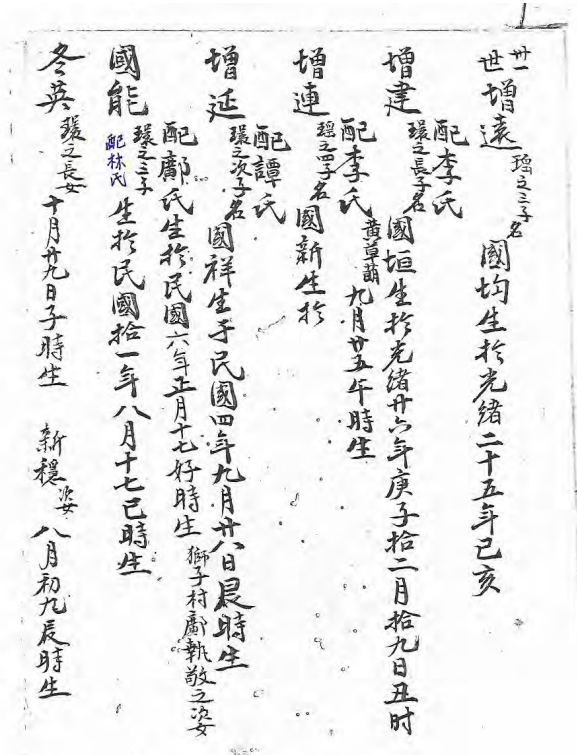 廿一
世增遠 瑶之三子名 國均生扵光緒二十五年己亥
配李氏
增建 環之長子名 國垣生扵光緒廿六年庚子拾二月拾九日丑时
配李氏 黄草萠 九月廿五午時生
增連 瑶之四子名 國新生扵
配譚氏
增延 環之次子名 國祥生于民國四年九月廿八日辰時生
配鄺氏生扵民國六年正月十七好時生 獅子村鄺執敬之次女
國能 環之三子 生扵民國拾一年八月十七巳時生
配林氏
冬英 環之長女 十月廿九日子時生 新穩 次女 八月初九辰時生